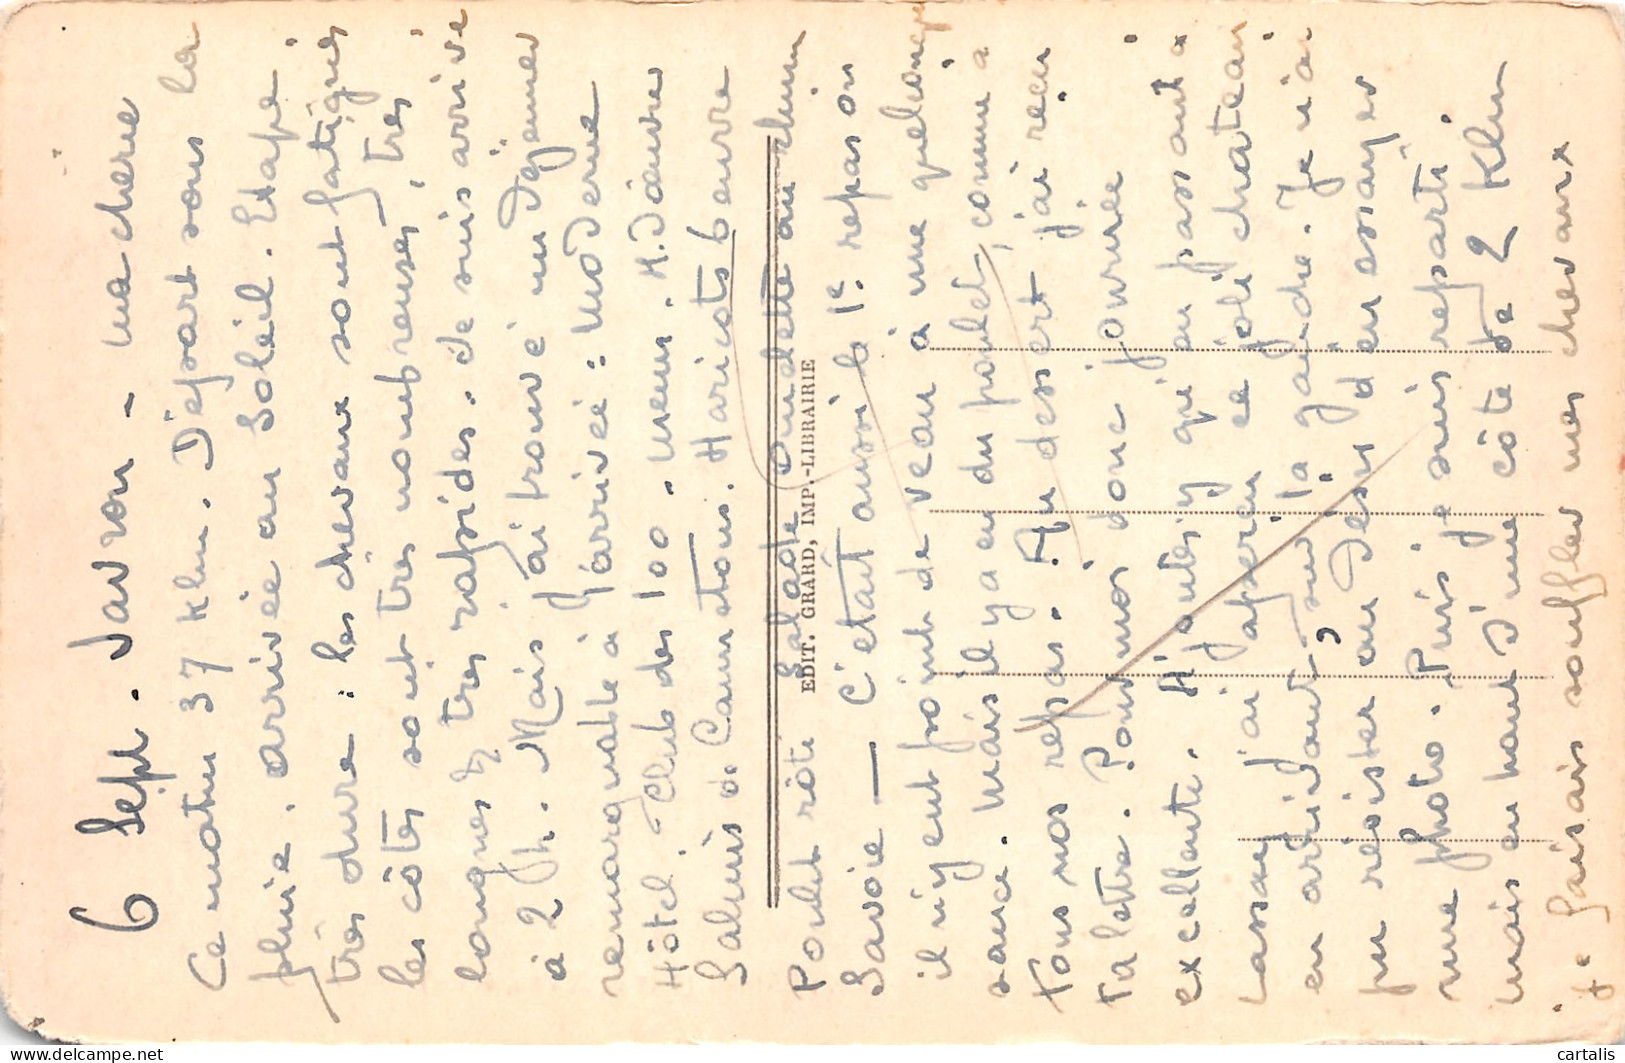 6 Sept. Javron - ma chère
Ce matin 37 Klm. Départ sous la
pluie. arrivée au Soleil. Etape
très dure : les chevaux sont fatigués
les côtes sont très nombreuses, très
longues & très rapides. Je suis arrivé
à 2 h. Mais j'ai trouvé un Déjeuner
remarquable à l'arrivée : Moderne
Hôtel. Club des 100. menu. H. D'œuvre
Salmis de Cannetons. Haricots beurre
Poulet rôti Salade Omelette au rhum
EDIT. GRARD, IMP.-LIBRAIRIE
Savoie — C'était aussi le 1e repas où
il n'y eut point de veau à une quelconque
sauce. Mais il y a eu du poulet, comme à
tous nos repas. Au dessert j'ai reçu
ta lettre. Pour moi donc journée
excellente. Ajoutes y qu'en passant à
Lassay j'ai aperçu ce joli château
en artidant, sur la gauche. Je n'ai
pu résister au Désir d'en essayer
une photo. Puis je suis reparti.
mais en haut d'une côte de 2 Klm
je fais souffler mes chevaux
cartalis